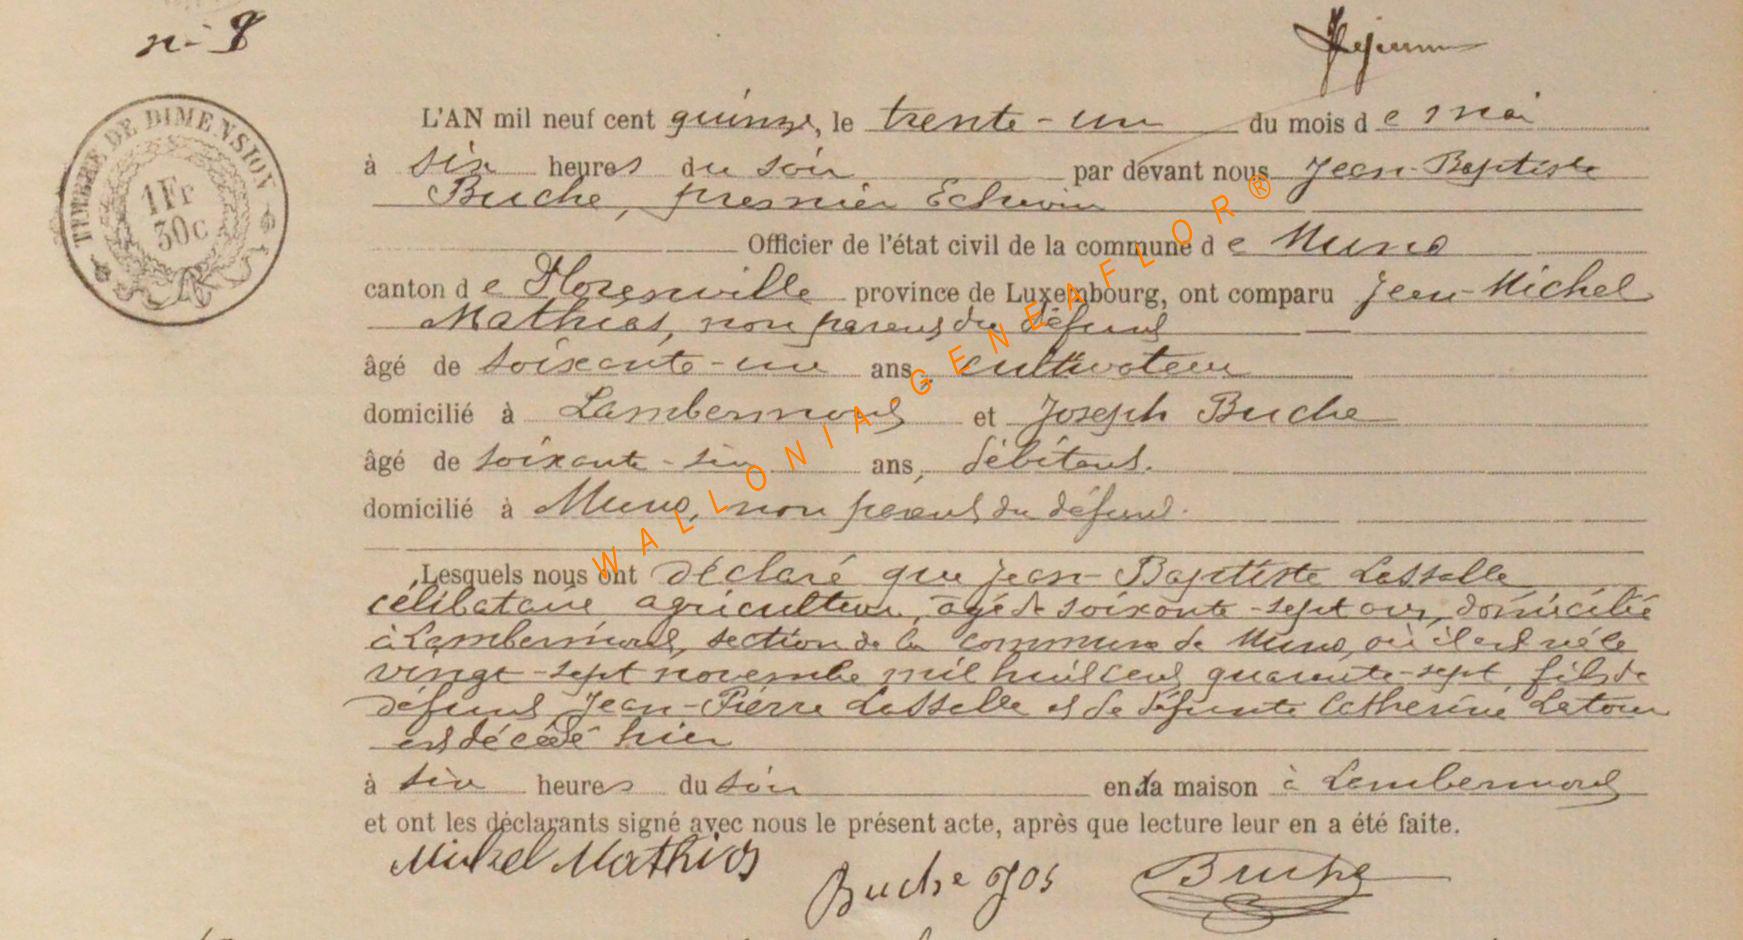 n- 8
TIMBRE DE DIMENSION
1 Fr
30c
L'AN mil neuf cent quinze, le trente-un du mois de mai
à six heures du soir par devant nous Jean-Baptiste
Buche, premier Echevin
Officier de l'état civil de la commune de Muno
canton de Florenville province de Luxembourg, ont comparu Jean-Michel
Mathias, non parent du défunt
âgé de soixante-un ans, cultivateur
domicilié à Lambermont et Joseph Buche
âgé de soixante-six ans, débitant.
domicilié à Muno, non parent du défunt.
Lesquels nous ont déclaré que Jean-Baptiste Lassalle
célibataire agriculteur, âgé de soixante-sept ans, domicilié
à Lambermont, section de la commune de Muno, où il est né le
vingt-sept novembre mil huit cent quarante-sept, fils de
défunt Jean-Pierre Lasselle et de défunte Catherine Latour
est décédé hier
à six heures du soir en sa maison à Lambermont
et ont les déclarants signé avec nous le présent acte, après que lecture leur en a été faite.
Michel Mathias
Buche Jos
Buche
WALLONIA-GENEAFLOR®